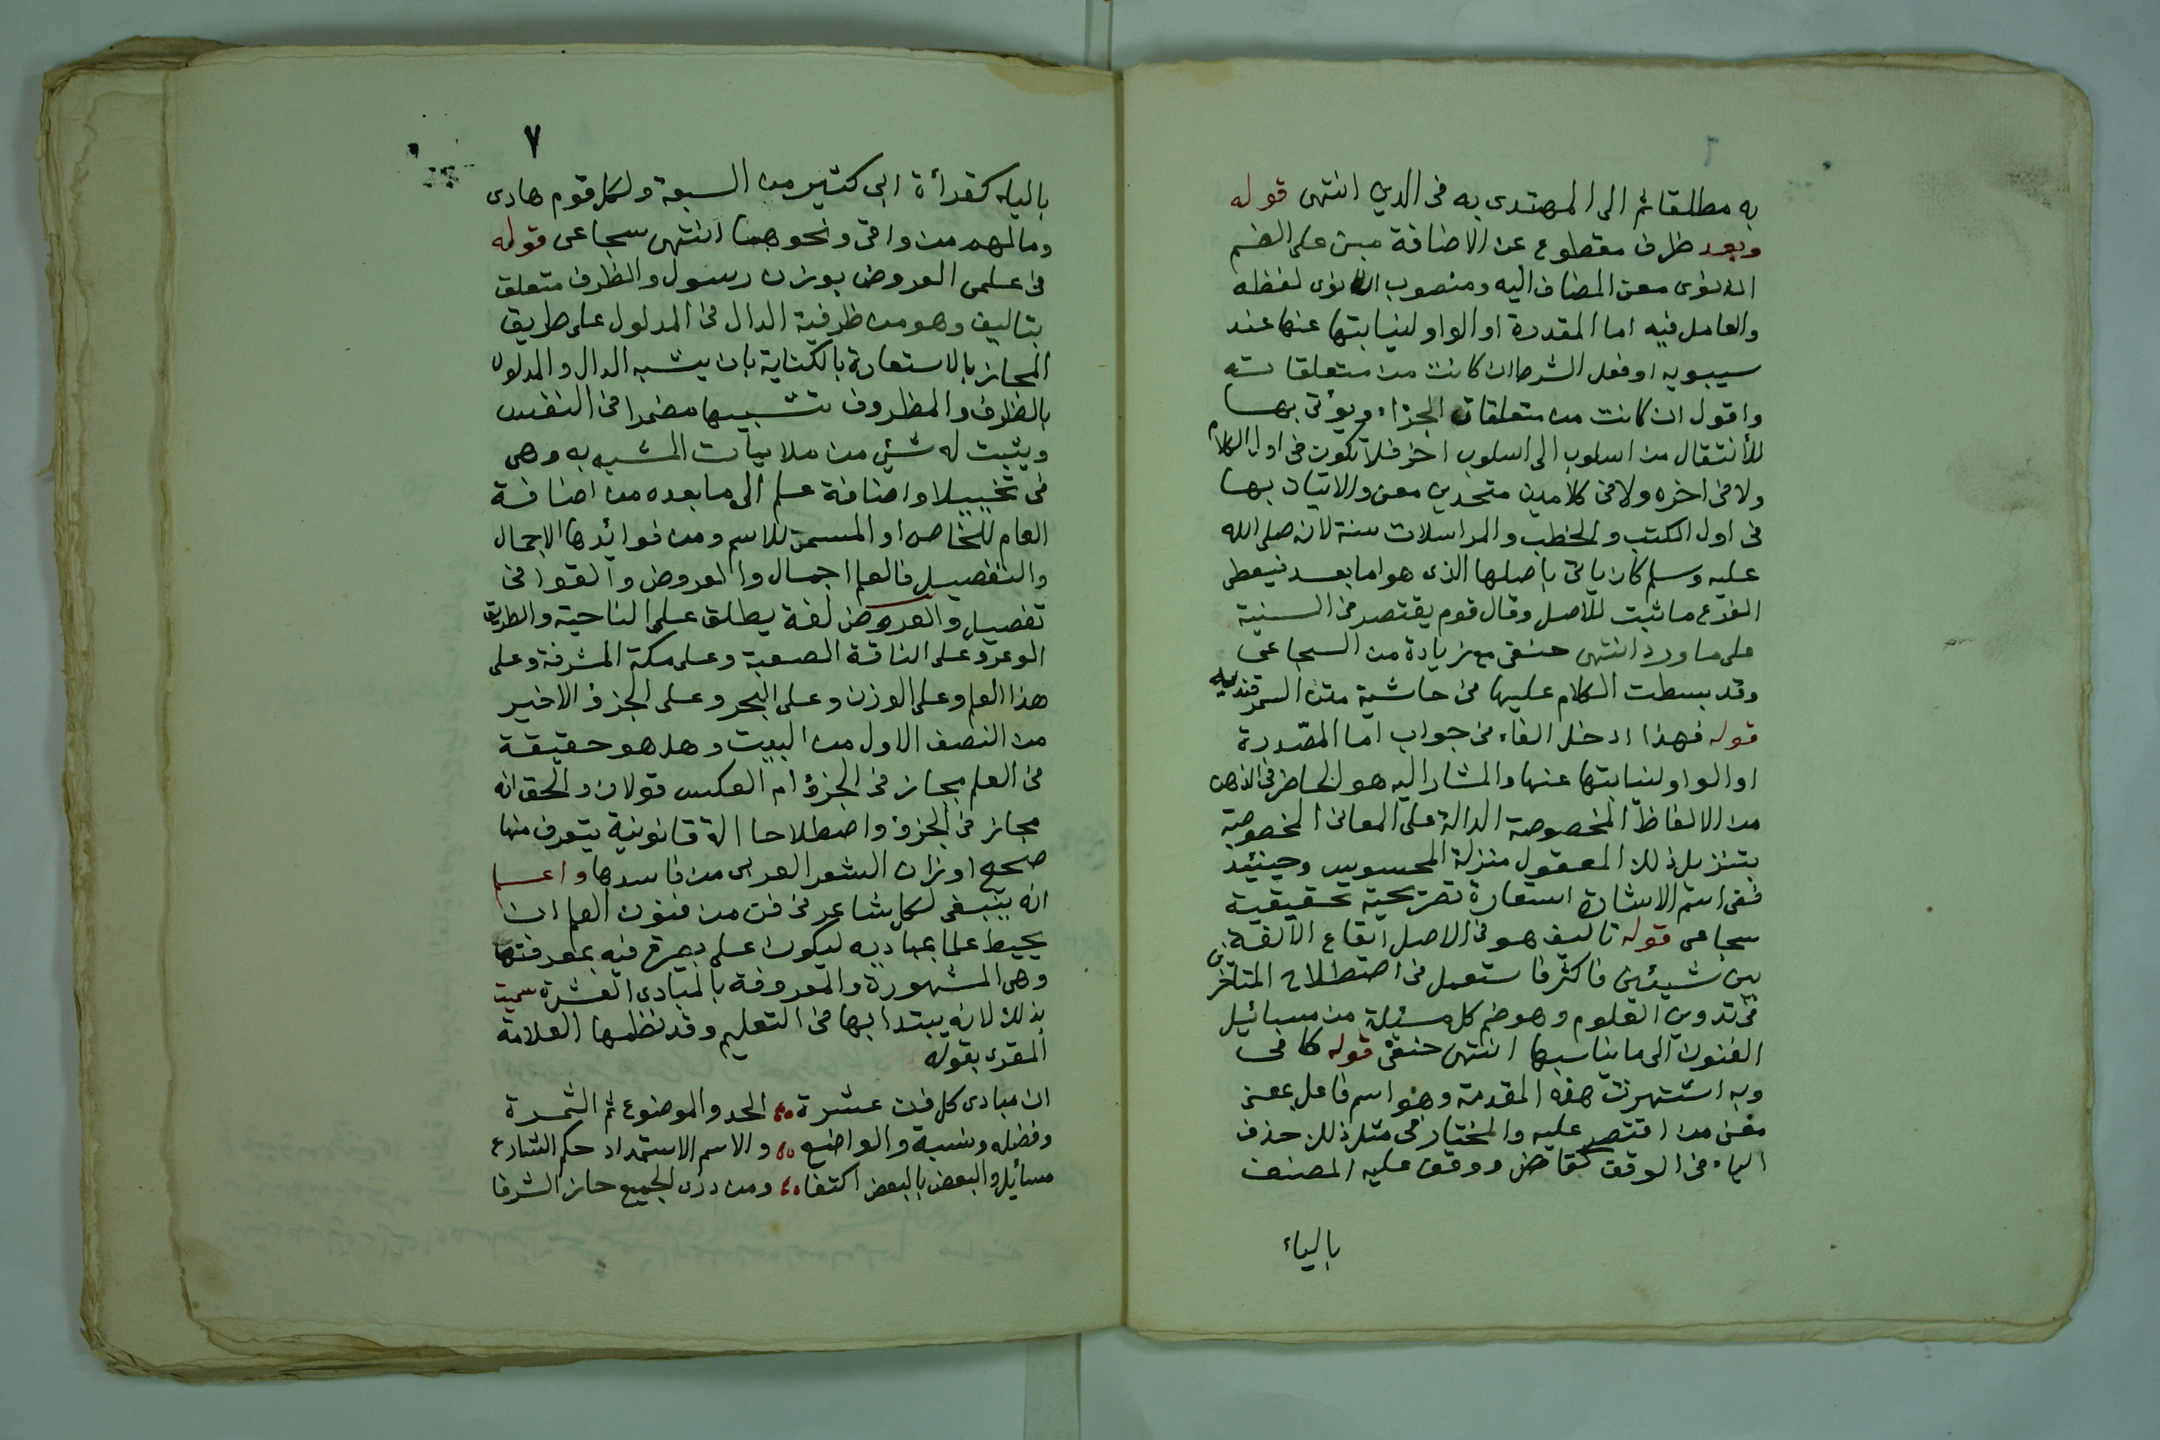 ٦
به مطلقا ثم الى المهتدى به فى الدين انتهى قوله
وبعد ظرف مقطوع عن الاضافة مبنى على الضم
ان نوى معنى المضاف اليه ومنصوب ان نوى لفظه
والعامل فيه اما المقدرة او الواو لنيابتها عنها عند
سيبويه او فعل الشرط ان كانت من متعلقاته
واقول ان كانت من متعلقات الجزاء ويؤتى بها
للأنتقال من اسلوب الى اسلوب اخر فلا تكون فى اول الكلام
ولا فى اخره ولا فى كلامين متحدين معنى والاتيان بها
فى اول الكتب والخطب والمراسلات سنة لانه صلى الله
عليه وسلم كان ياتى باصلها الذى هو اما بعد فيعطى
الفرع ما ثبت للاصل وقال قوم يقتصر فى السنية
على ما ورد انتهى حنفى مع زيادة من السجاعى
وقد بسطت الكلام عليها فى حاشية متن السمرقنديه
قوله فهذا ادخل الفاء فى جواب اما المقدرة
او الواو لنيابتها عنها والمشار اليه هو الحاضر فى الذهن
من الالفاظ المخصوصة الدالة على المعانى المخصوصة
بتنزيل ذلك المعقول منزلة المحسوس وحينئذ
ففى اسم الاشارة استعارة تصريحية تحقيقية
سجاعى قوله تاليف هو فى الاصل ايقاع الألفة
بين شيئين فاكثر فاستعمل فى اصطلاح المتاخرين
فى تدوين العلوم وهو ضم كل مسئلة من مسائيل
الفنون الى ما يناسبها انتهى حنفى قوله كافى
وبه اشتهرت هذه المقدمة وهو اسم فاعل بمعنى
مغنى من اقتصر عليه والمختار فى مثل ذلك حذف
الياء فى الوقف كقاض ووقف عليه المصنف
بالياء
٧
بالياء كقرأة ابى كثير من السبعة ولكل قوم هادى
وما لهم من واقى ونحوهما انتهى سجاعى قوله
فى علمى العروض بوزن رسول والظرف متعلق
بتاليف وهو من ظرفية الدال فى المدلول على طريق
المجاز بالاستعارة بالكناية بان يشبه الدال والمدلول
بالظرف والمظروف تشبيها مضمرا فى النفس
ويثبت له شئ من ملايمات المشبه به وهى
فى تخييلا واضافة علم الى ما بعده من اضافة
العام للخاص او المسمى للاسم ومن فوائدها الاجمال
والتفصيل فالعلم اجمال والعروض والقوافى
تفصيل والعروض لغة يطلق على الناحية والطريق
الوعر وعلى الناقة الصعبة وعلى مكة المشرفة وعلى
هذا العلم وعلى الوزن وعلى البحر وعلى الجزؤ الاخير
من النصف الاول من البيت وهل هو حقيقة
فى العلم مجاز فى الجزؤ ام العكس قولان والحق انه
مجاز فى الجزؤ واصطلاحا الة قانونية يتعرف منها
صحيح اوزان الشعر العربى من فاسدها واعلم
انه ينبغى لكل شاعر فى فن من فنون العلم ان
يحيط علما بمباديه ليكون على بصيرة فيه بمعرفتها
وهى المشهورة والمعروفة بالمبادى العشرة سميت
بذلك لانه يبتدا بها فى التعليم وقد نظمها العلامة
المقرى بقوله
ان مبادى كل فن عشرة الحد والموضوع ثم الثمرة
وفضله ونسبة والواضع والاسم الاستمداد حكم الشارع
مسائيل والبعض بالبعض اكتفا ومن درى الجميع حاز الشرفا